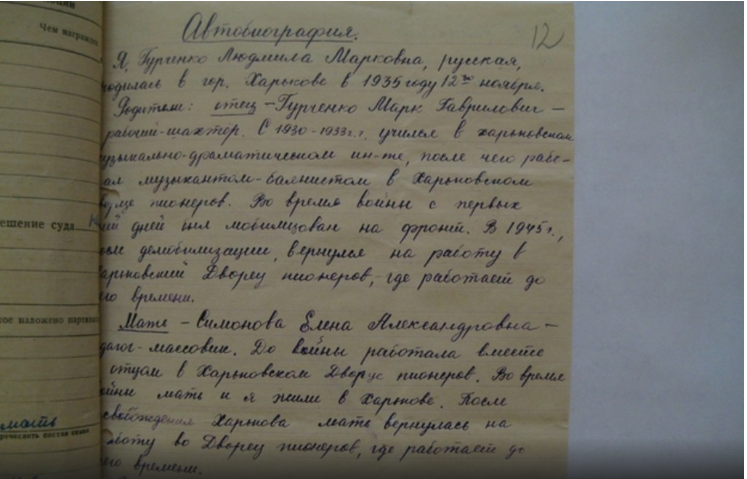 Чем награжден
Автобиография.
12
Я, Гурченко Людмила Марковна, русская,
родилась в гор. Харькове в 1935 году 12го ноября.
Родители: отец – Гурченко Марк Гаврилович –
рабочий-шахтёр. С 1930-1933г.г. учился в харьковском
музыкально-драматическом ин-те, после чего рабо-
ал музыкантом-баянистом в Харьковском
пионеров. Во время войны с первых
дней был мобилизован на фронт. В 1945г.,
демобилизации, вернулся на работу в
арьковский Дворец пионеров, где работает до
времени.
Мать – Симонова Елена Александровна –
дагог-массовик. До войны работала вместе
отцом в Харьковском Дворце пионеров. Во время
ойны мать и я жили в Харькове. После
свобождения Харькова мать вернулась на
боту во Дворец пионеров, где работает до
его времени.
ешение суда
ое наложено партийное